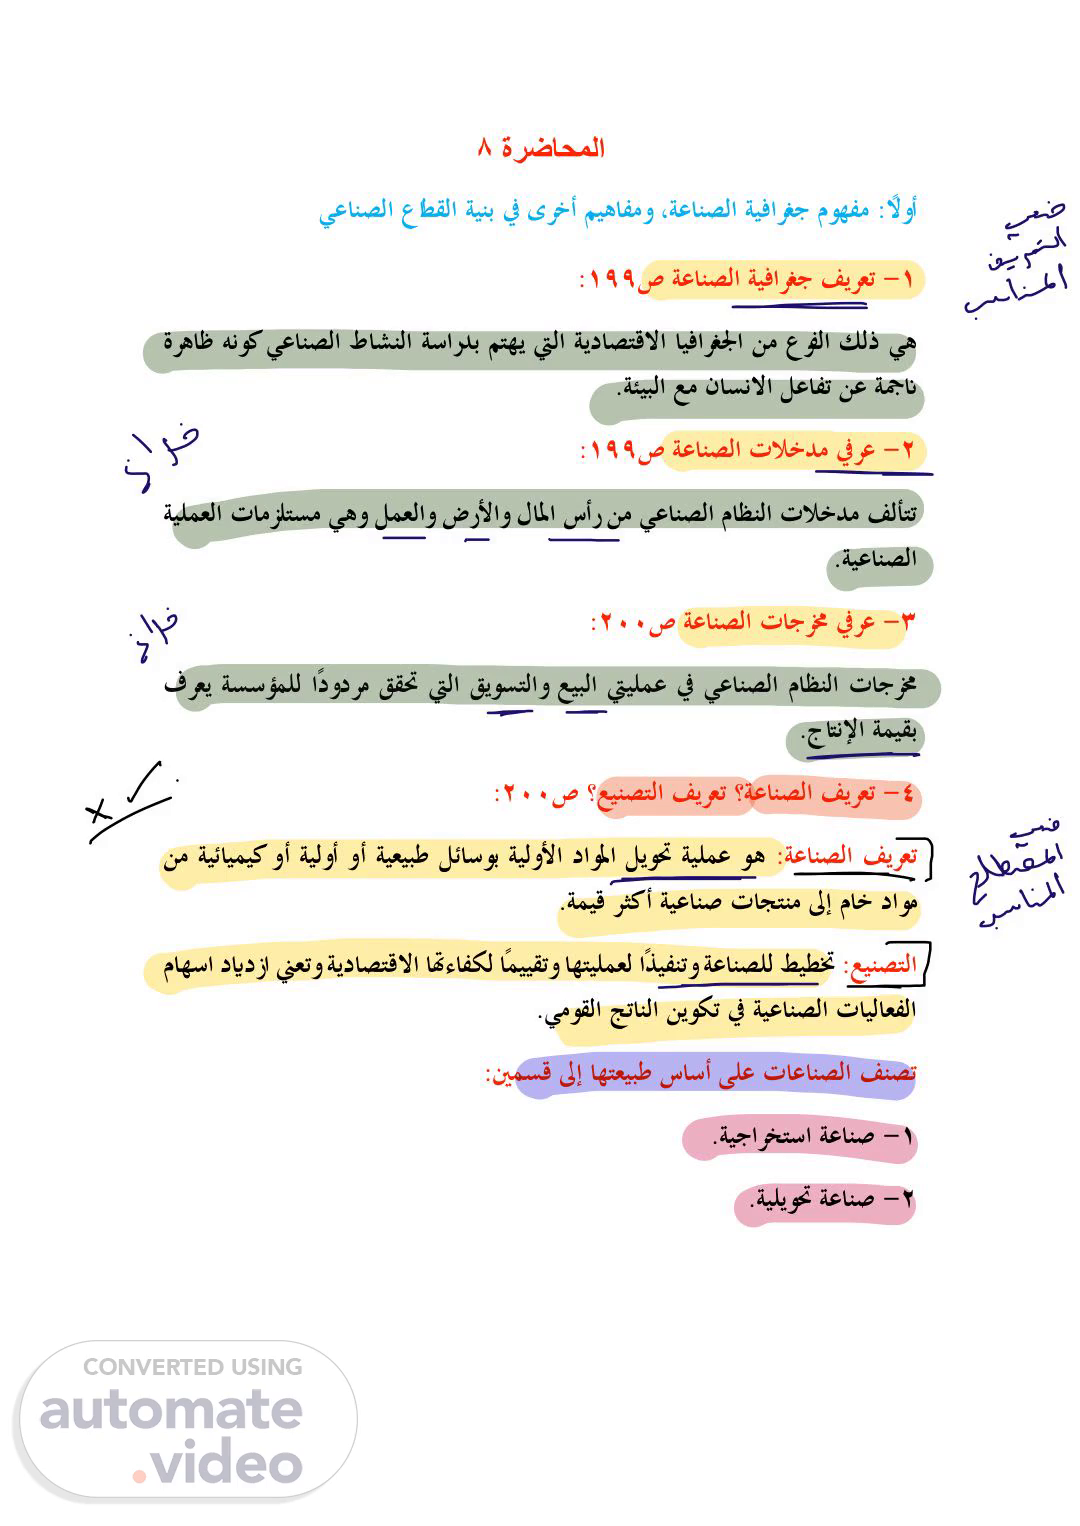 المحاضرة ٨
أولًا: مفهوم جغرافية الصناعة، ومفاهيم أخرى في بنية القطاع الصناعي
ضعي
التعريف
المناسب
١- تعريف جغرافية الصناعة ص١٩٩:
هي ذلك الفرع من الجغرافيا الاقتصادية التي يهتم بدراسة النشاط الصناعي كونه ظاهرة
ناجمة عن تفاعل الانسان مع البيئة.
٢- عرفي مدخلات الصناعة ص١٩٩:
تتألف مدخلات النظام الصناعي من رأس المال والأرض والعمل وهي مستلزمات العملية
الصناعية.
٣- عرفي مخرجات الصناعة ص٢٠٠:
مخرجات النظام الصناعي في عمليتي البيع والتسويق التي تحقق مردودًا للمؤسسة يعرف
بقيمة الإنتاج.
٤- تعريف الصناعة؟ تعريف التصنيع؟ ص٢٠٠:
تعريف الصناعة: هو عملية تحويل المواد الأولية بوسائل طبيعية أو أولية أو كيميائية من
مواد خام إلى منتجات صناعية أكثر قيمة.
ضعي
المصطلح
المناسب
التصنيع: تخطيط للصناعة وتنفيذًا لعمليتها وتقييمًا لكفاءتها الاقتصادية وتعني ازدياد اسهام
الفعاليات الصناعية في تكوين الناتج القومي.
تصنف الصناعات على أساس طبيعتها إلى قسمين:
١- صناعة استخراجية.
٢- صناعة تحويلية.
CONVERTED USING
automate
.video